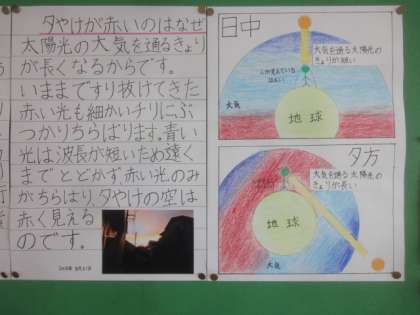 夕やけが赤いのはなぜ
太陽光の大気を通るきょり
が長くなるからです。
いままですり抜けてきた
赤い光も細かいチリにぶ
つかりちらばります。青い
光は波長が短いため遠く
までとどかず赤い光のみ
がちらばり、夕やけの空は
赤く見える
のです。
日中
大気を通る太陽光の
きょりが短い
大気
地球
夕方
大気を通る太陽光の
きょりが長い
地球
大気